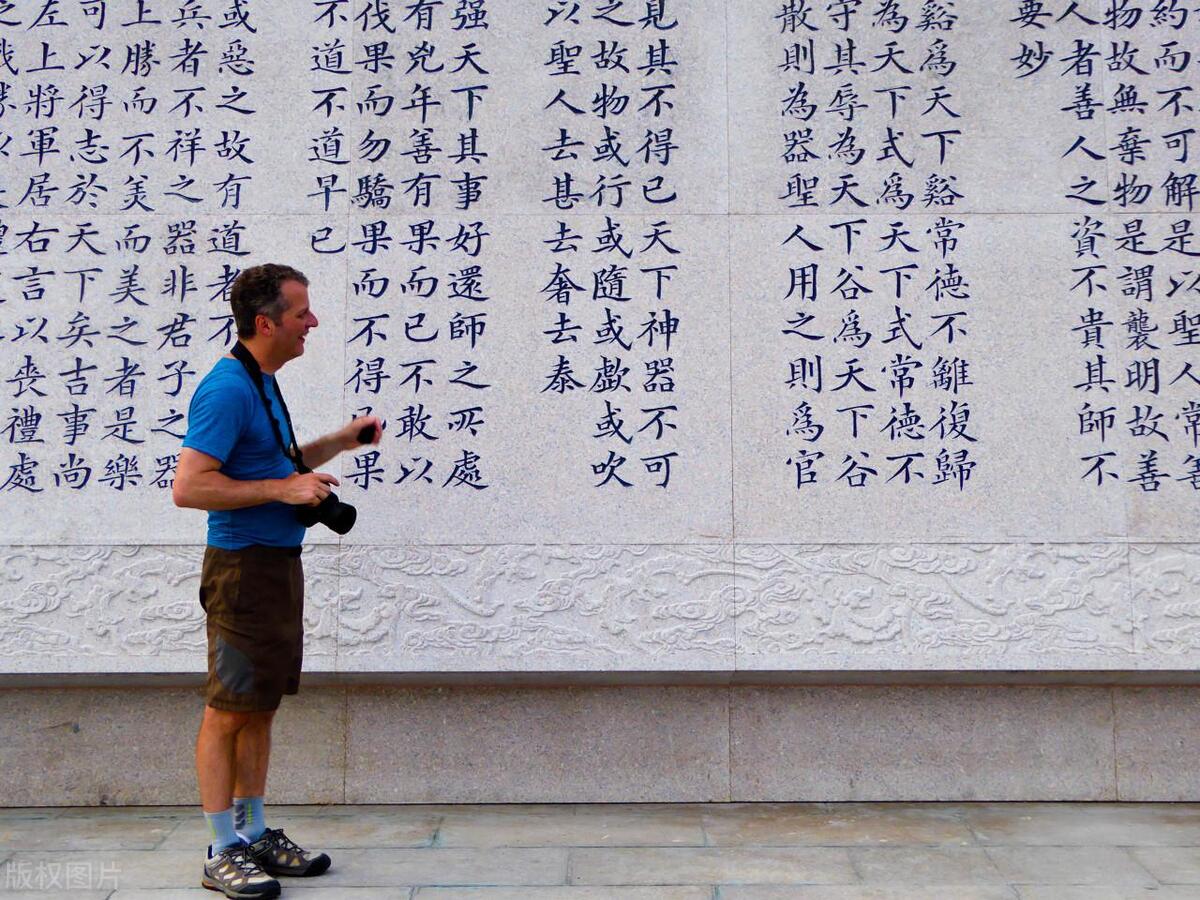 約而不可解是以聖人常善
物故無棄物是謂襲明故善
人者善人之資不貴其師不
要妙
谿爲天下谿常德不離復歸
為天下式爲天下式常德不
守其辱為天下谷爲天下谷
散則為器聖人用之則爲官
見其不得已天下神器不可
之故物或行或隨或歔或吹
以聖人去甚去奢去泰
强天下其事好還師之所處
有兇年善有果而已不敢以
伐果而勿驕果而不得已果
不道不道早已
或惡之故有道者不
兵者不祥之器非君子之器
上勝而不美而美之者是樂
可以得志於天下矣吉事尚
左上將軍居右言以喪禮處
版权图片